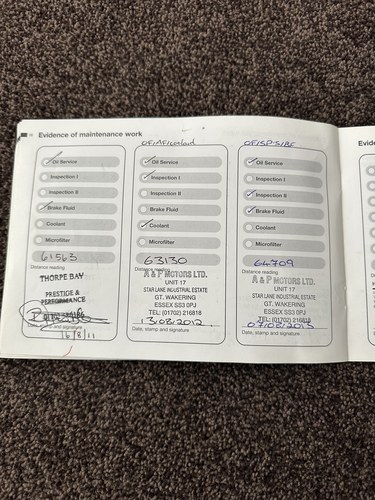 Evidence of maintenance work
Oil Service
Inspection I
Inspection II
Brake Fluid
Coolant
Microfilter
61563
Distance reading
THORPE BAY
PRESTIGE &
PERFORMANCE
Date, stamp and signature
16/8/11
OF/AF/coolant
Oil Service
Inspection I
Inspection II
Brake Fluid
Coolant
Microfilter
63130
Distance reading
A & P MOTORS LTD.
UNIT 17
STAR LANE INDUSTRIAL ESTATE
GT. WAKERING
ESSEX SS3 0PJ
TEL: (01702) 216818
13/08/2012
Date, stamp and signature
OF/SP-S/BF
Oil Service
Inspection I
Inspection II
Brake Fluid
Coolant
Microfilter
64709
Distance reading
A & P MOTORS LTD.
UNIT 17
STAR LANE INDUSTRIAL ESTATE
GT. WAKERING
ESSEX SS3 0PJ
TEL: (01702) 216818
07/08/2013
Date, stamp and signature
Evid